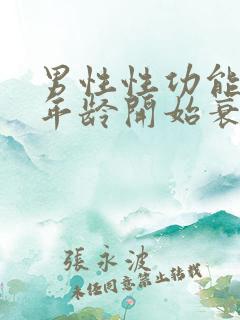 男性性功能
年龄開始衰
張永波
未经同意禁止转载